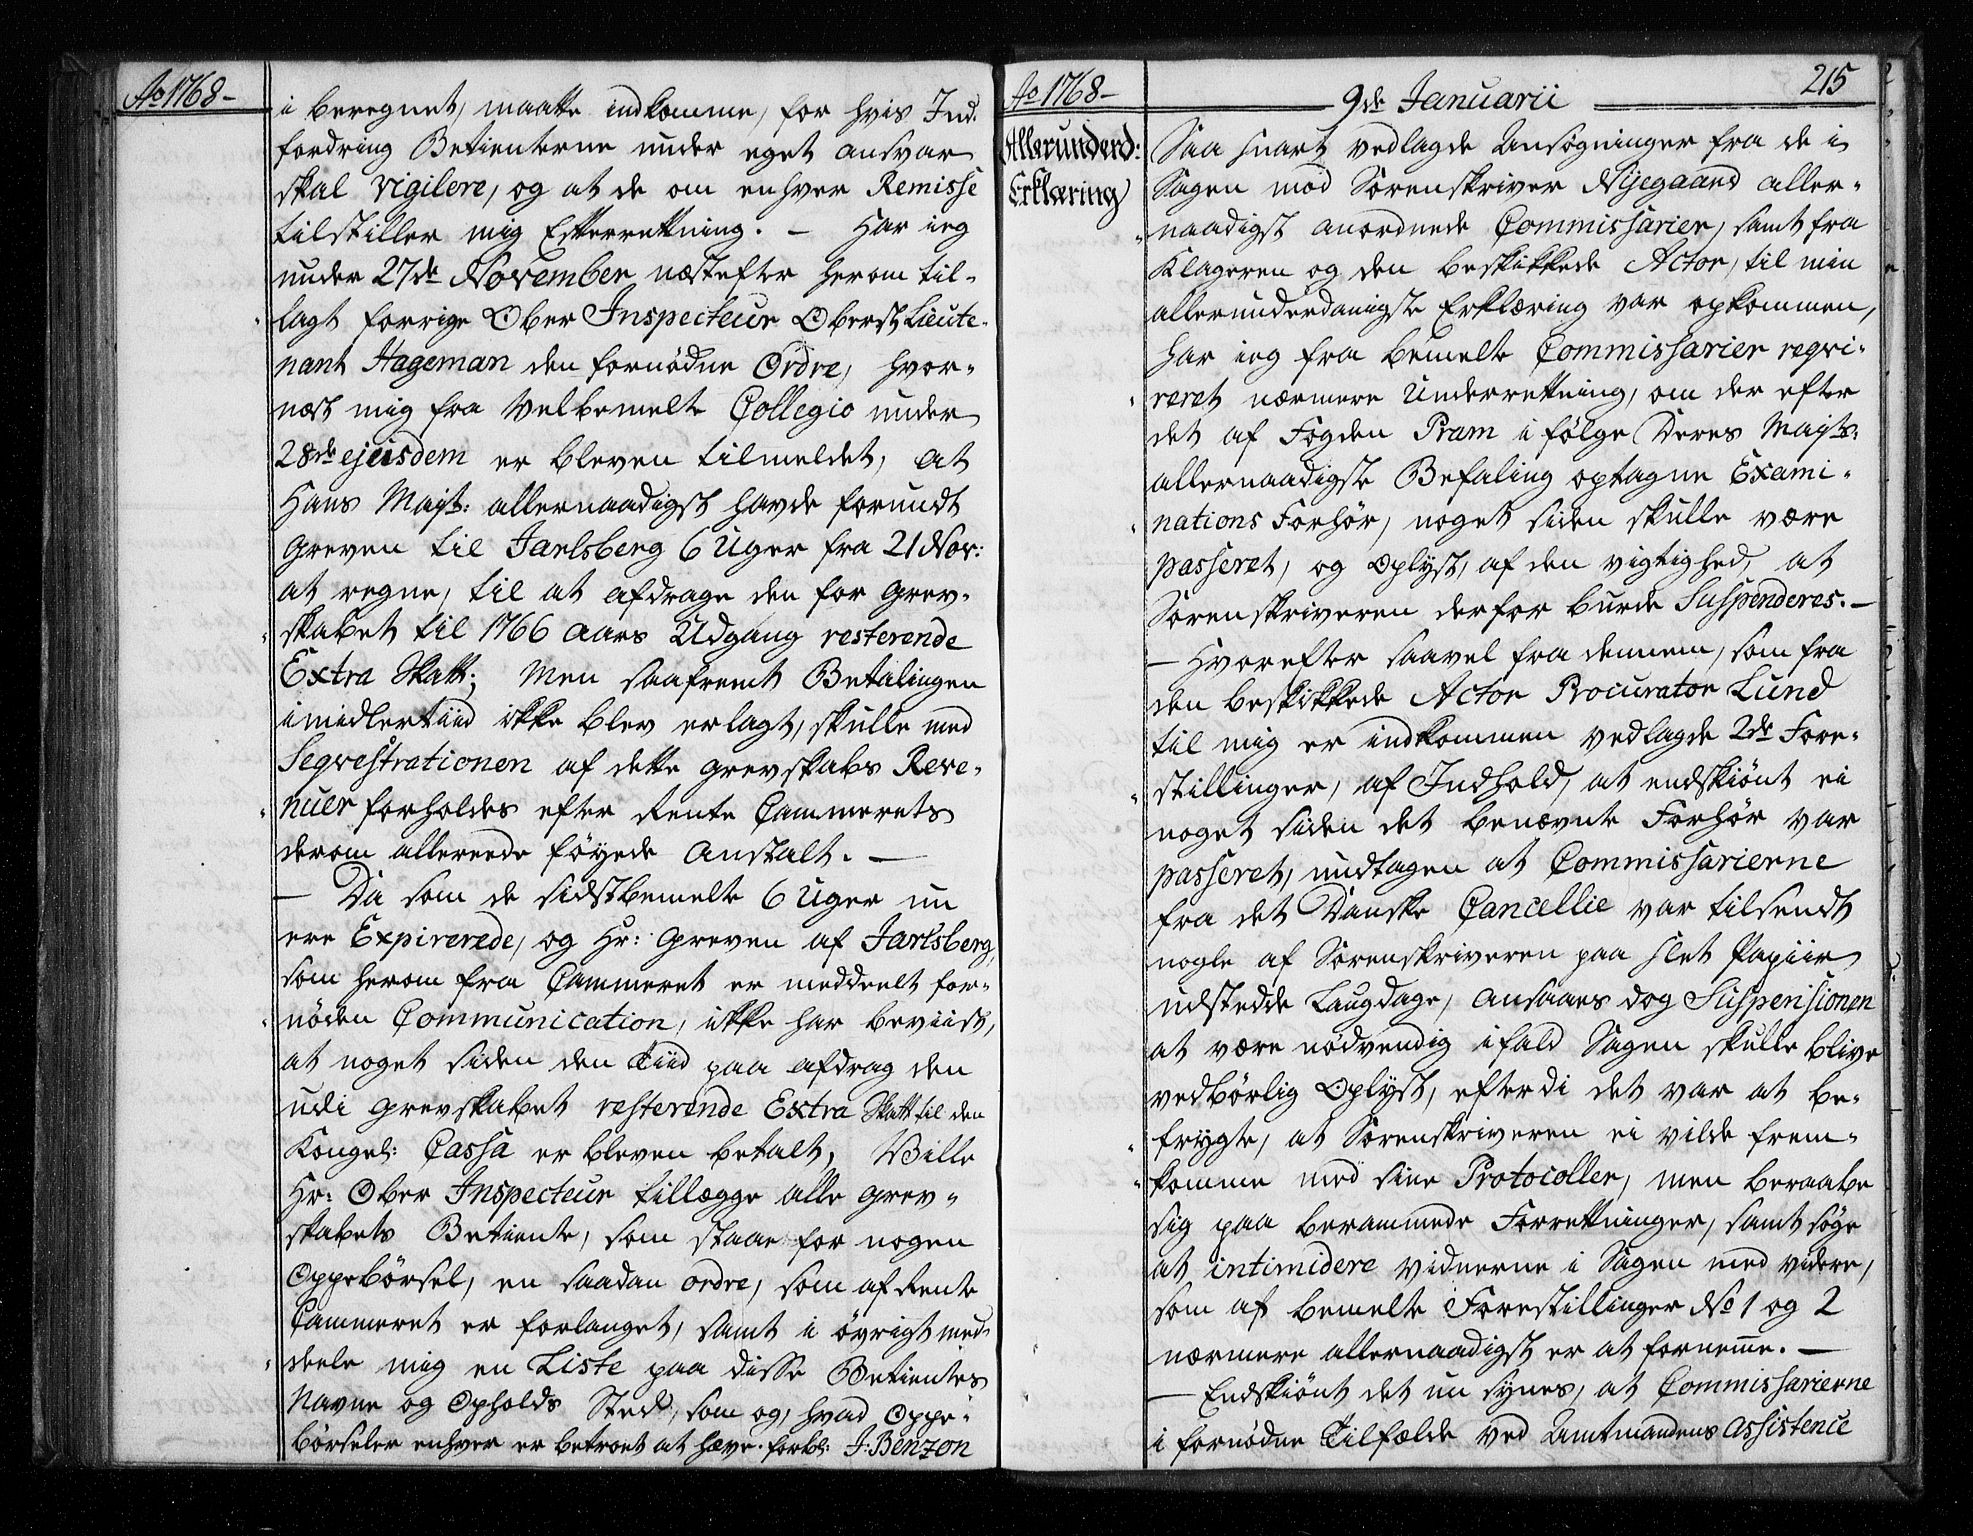 Ao 1768-
i beregnet, maatte indkomme, for hvis Ind-
fordring Betienterne under eget ansvar
skal vigilere, og at de om enhver Remisse
tilstiller mig Efterretning. - Har ieg
under 27de November næstefter herom til-
lagt forrige Ober Inspecteur Oberst Lieute-
nant Hageman den fornødne Ordre, hvor-
næst mig fra Velbemelte Collegio under
28de ejusdem er bleven tilmeldet, at
Hans Mayt: allernaadigst havde forundt
Greven til Jarlsberg 6 Uger fra 21 Nov:
at regne, til at afdrage den for Grev-
skabet til 1766 Aars Udgang resterende
Extra Skatt; Men saafremt Betalingen
imidlertiid ikke blev erlagt, skulle med
Seqvestrationen af dette Grevskabs Reve-
nuer forholdes efter Rente Cammerets
derom allereede føyede Anstalt. -
- Da som de sidstbemelte 6 Uger nu
ere Expirerede, og Hr: Greven af Jarlsberg,
som herom fra Cammeret er meddeelt for-
nøden Communication, ikke har beviist,
at noget siden den Tiid paa Afdrag den
udi Grevskabet resterende Extra Skatt til den
Kongel: Cassa er bleven betalt, Wille
Hr: Ober Inspecteur tillægge alle Grev-
skabets Betiente, som staar for nogen
Oppebørsel, en saadan ordre, som af Rente
Cammeret er forlanget, samt i øvrigt med-
deele mig en Liste paa disse Betientes
Navne og Opholds Sted, som og, hvad Oppe-
børseler enhver er betroet at hæve. forbl: J: Benzon
Ao 1768-
9de Januarii
215
Allerunderd:
Erklæring
Saa snart vedlagde Ansøgninger fra de i
Sagen mod Sorenskriver Nijegaard aller-
naadigst anordnede Commissarier, samt fra
Klageren og den beskikkede Actor, til min
allerunderdanigste Erklæring var opkommen,
har ieg fra bemelte Commissarier reqvi-
reret nærmere Underretning, om der efter
det af Fogden Pram i følge Deres Mayts:
allernaadigste Befaling optagne Exami-
nations Forhør, noget siden skulle være
passeret, og Oplyst, af den vigtighed, at
Sorenskriveren derfor burde Suspenderes. -
- Hvorefter saavel fra dennem, som fra
den beskikkede Actor Procurator Lund
til mig er indkommen vedlagde 2de Fore-
stillinger, af Indhold, at endskiønt ei
noget siden det benævnte Forhør var
passeret, undtagen at Commissarierne
fra det Danske Cancellie var tilsendt
nogle af Sorenskriveren paa slet Papiir
udstedde Laugdage, ansaaes dog Suspensionen
at være nødvendig ifald Sagen skulle blive
vedbørlig Oplyst, efterdi det var at be-
frygte, at Sorenskriveren ei vilde frem-
komme med sine Protocoller, men beraabe
sig paa berammede Forretninger, samt søge
at intimidere vidnerne i Sagen med videre,
som af bemelte Forestillinger No 1 og 2
nærmere allernaadigst er at fornemme. -
- Endskiønt det nu synes, at Commissarierne
i fornødne Tilfælde ved Amtmandens Assistence